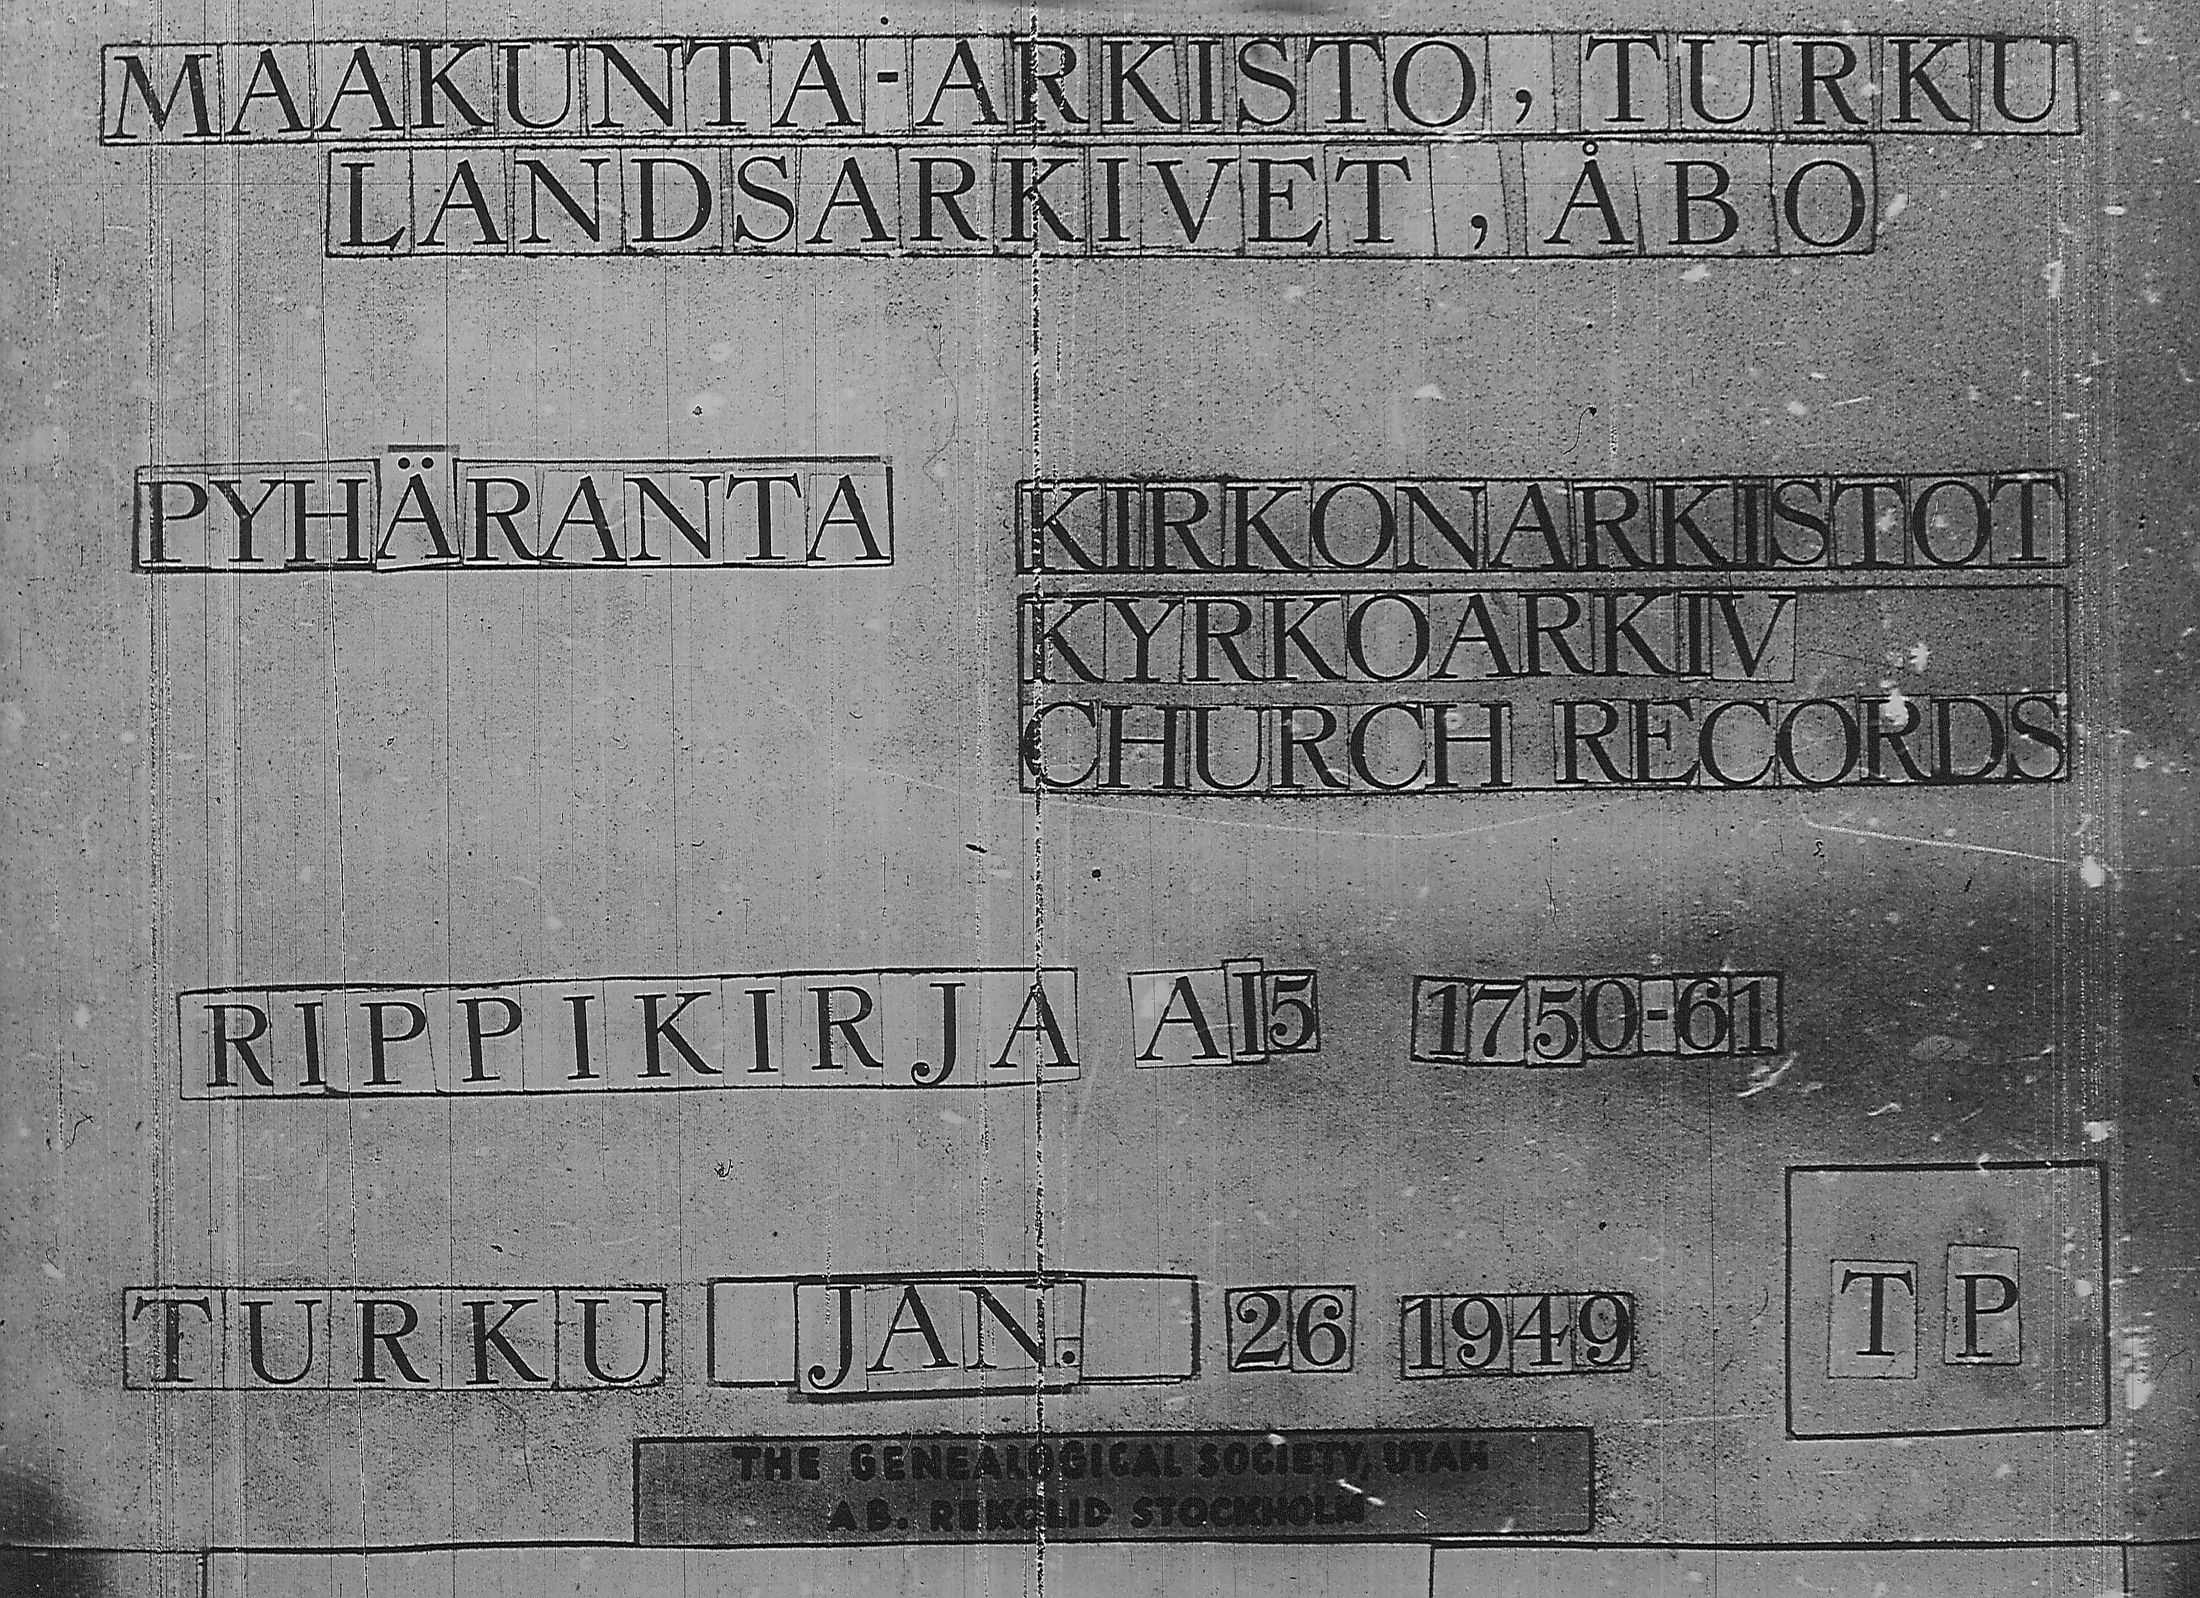 MAAKUNTA-ARKISTO, TURKU
LANDSARKIVET, ÅBO
PYHÄRANTA
KIRKONARKISTOT
KYRKOARKIV
CHURCH RECORDS
RIPPIKIRJA AI5 1750-61
TURKU JAN. 26 1949
T P
THE GENEALOGICAL SOCIETY, UTAH
AB. REKOLID STOCKHOLM